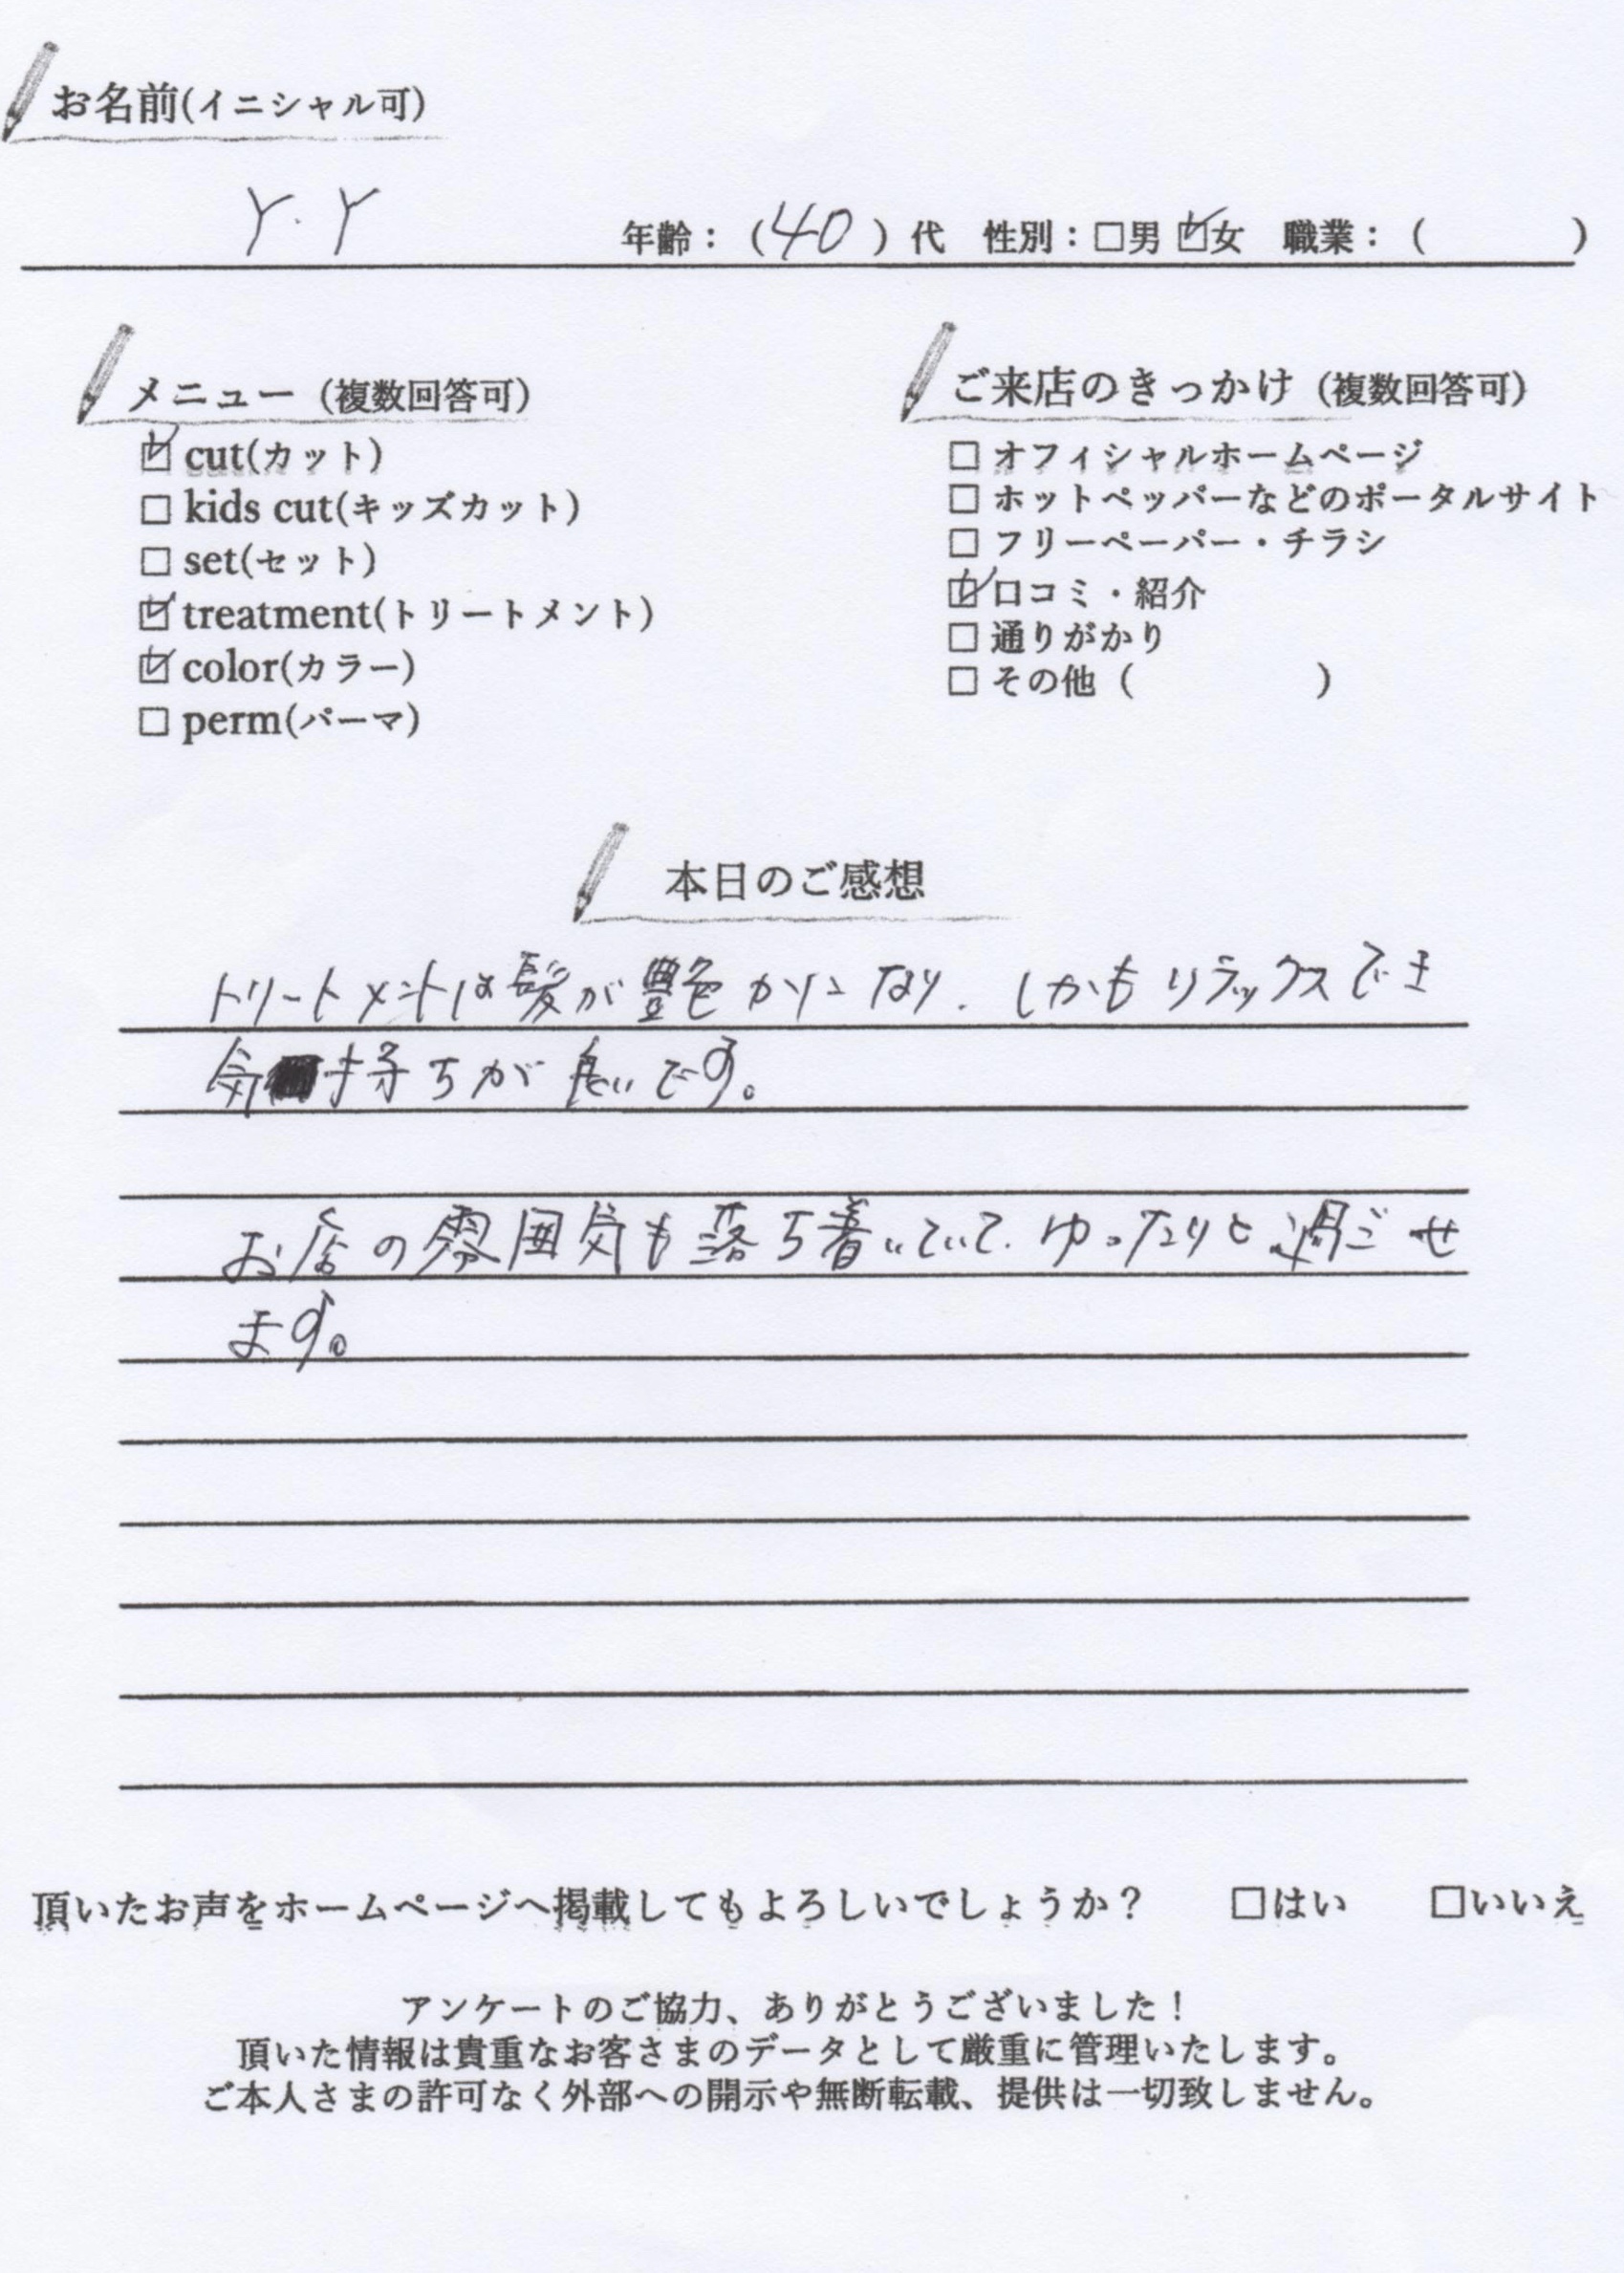 お名前(イニシャル可)
Y.Y 年齢：（40）代 性別：☐男 ☑女 職業：（ ）
メニュー（複数回答可）
☑ cut(カット)
☐ kids cut(キッズカット)
☐ set(セット)
☑ treatment(トリートメント)
☑ color(カラー)
☐ perm(パーマ)
ご来店のきっかけ（複数回答可）
☐ オフィシャルホームページ
☐ ホットペッパーなどのポータルサイト
☐ フリーペーパー・チラシ
☑ 口コミ・紹介
☐ 通りがかり
☐ その他（ ）
本日のご感想
トリートメントは髪が艶かになり、しかもリラックスでき
気持ちが良いです。
お店の雰囲気も落ち着いていて、ゆったりと過ごせ
ます。
頂いたお声をホームページへ掲載してもよろしいでしょうか？ ☐はい ☐いいえ
アンケートのご協力、ありがとうございました！
頂いた情報は貴重なお客さまのデータとして厳重に管理いたします。
ご本人さまの許可なく外部への開示や無断転載、提供は一切致しません。